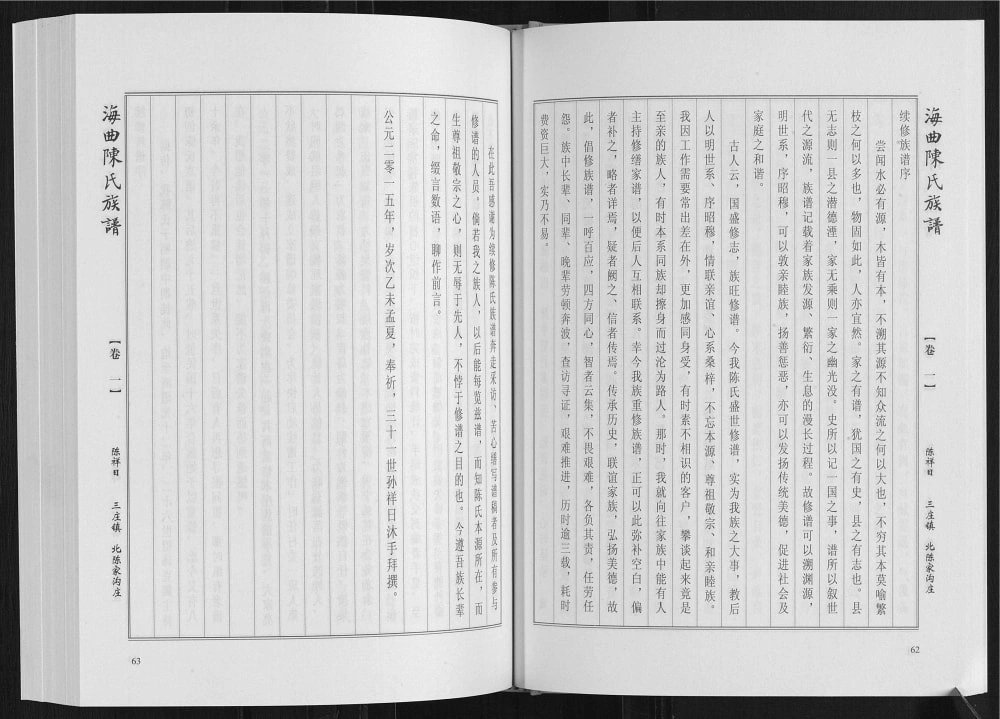 海曲陳氏族譜
【卷 一】
陈祥日 三庄镇 北陈家沟庄
续修族谱序
尝闻水必有源，木皆有本，不溯其源不知众流之何以大也，不穷其本莫喻繁
枝之何以多也，物固如此，人亦宜然。家之有谱，犹国之有史，县之有志也。县
无志则一县之潜德湮，家无乘则一家之幽光没。史所以记一国之事，谱所以叙世
代之源流，族谱记载着家族发源、繁衍、生息的漫长过程。故修谱可以溯渊源，
明世系，序昭穆，可以敦亲睦族，扬善惩恶，亦可以发扬传统美德，促进社会及
家庭之和谐。
古人云，国盛修志，族旺修谱。今我陈氏盛世修谱，实为我族之大事，教后
人以明世系、序昭穆，情联亲谊、心系桑梓，不忘本源、尊祖敬宗、和亲睦族。
我因工作需要常出差在外，更加感同身受，有时素不相识的客户，攀谈起来竟是
至亲的族人，有时本系同族却擦身而过沦为路人。那时，我就向往家族中能有人
主持修缮家谱，以便后人互相联系。幸今我族重修族谱，正可以此弥补空白，偏
者补之，略者详焉，疑者阙之、信者传焉。传承历史，联谊家族，弘扬美德，故
此，倡修族谱，一呼百应，四方同心，智者云集，不畏艰难，各负其责，任劳任
怨。族中长辈、同辈、晚辈劳顿奔波，查访寻证，艰难推进，历时逾三载，耗时
费资巨大，实乃不易。
62
在此吾感谢为续修陈氏族谱奔走采访、苦心缮写谱稿者及所有参与
修谱的人员，倘若我之族人，以后能每览兹谱，而知陈氏本源所在，而
生尊祖敬宗之心，则无辱于先人，不悖于修谱之目的也。今遵吾族长辈
之命，缀言数语，聊作前言。
公元二零一五年，岁次乙未孟夏，奉祈，三十一世孙祥日沐手拜撰。
海曲陳氏族譜
【卷 一】
陈祥日 三庄镇 北陈家沟庄
63